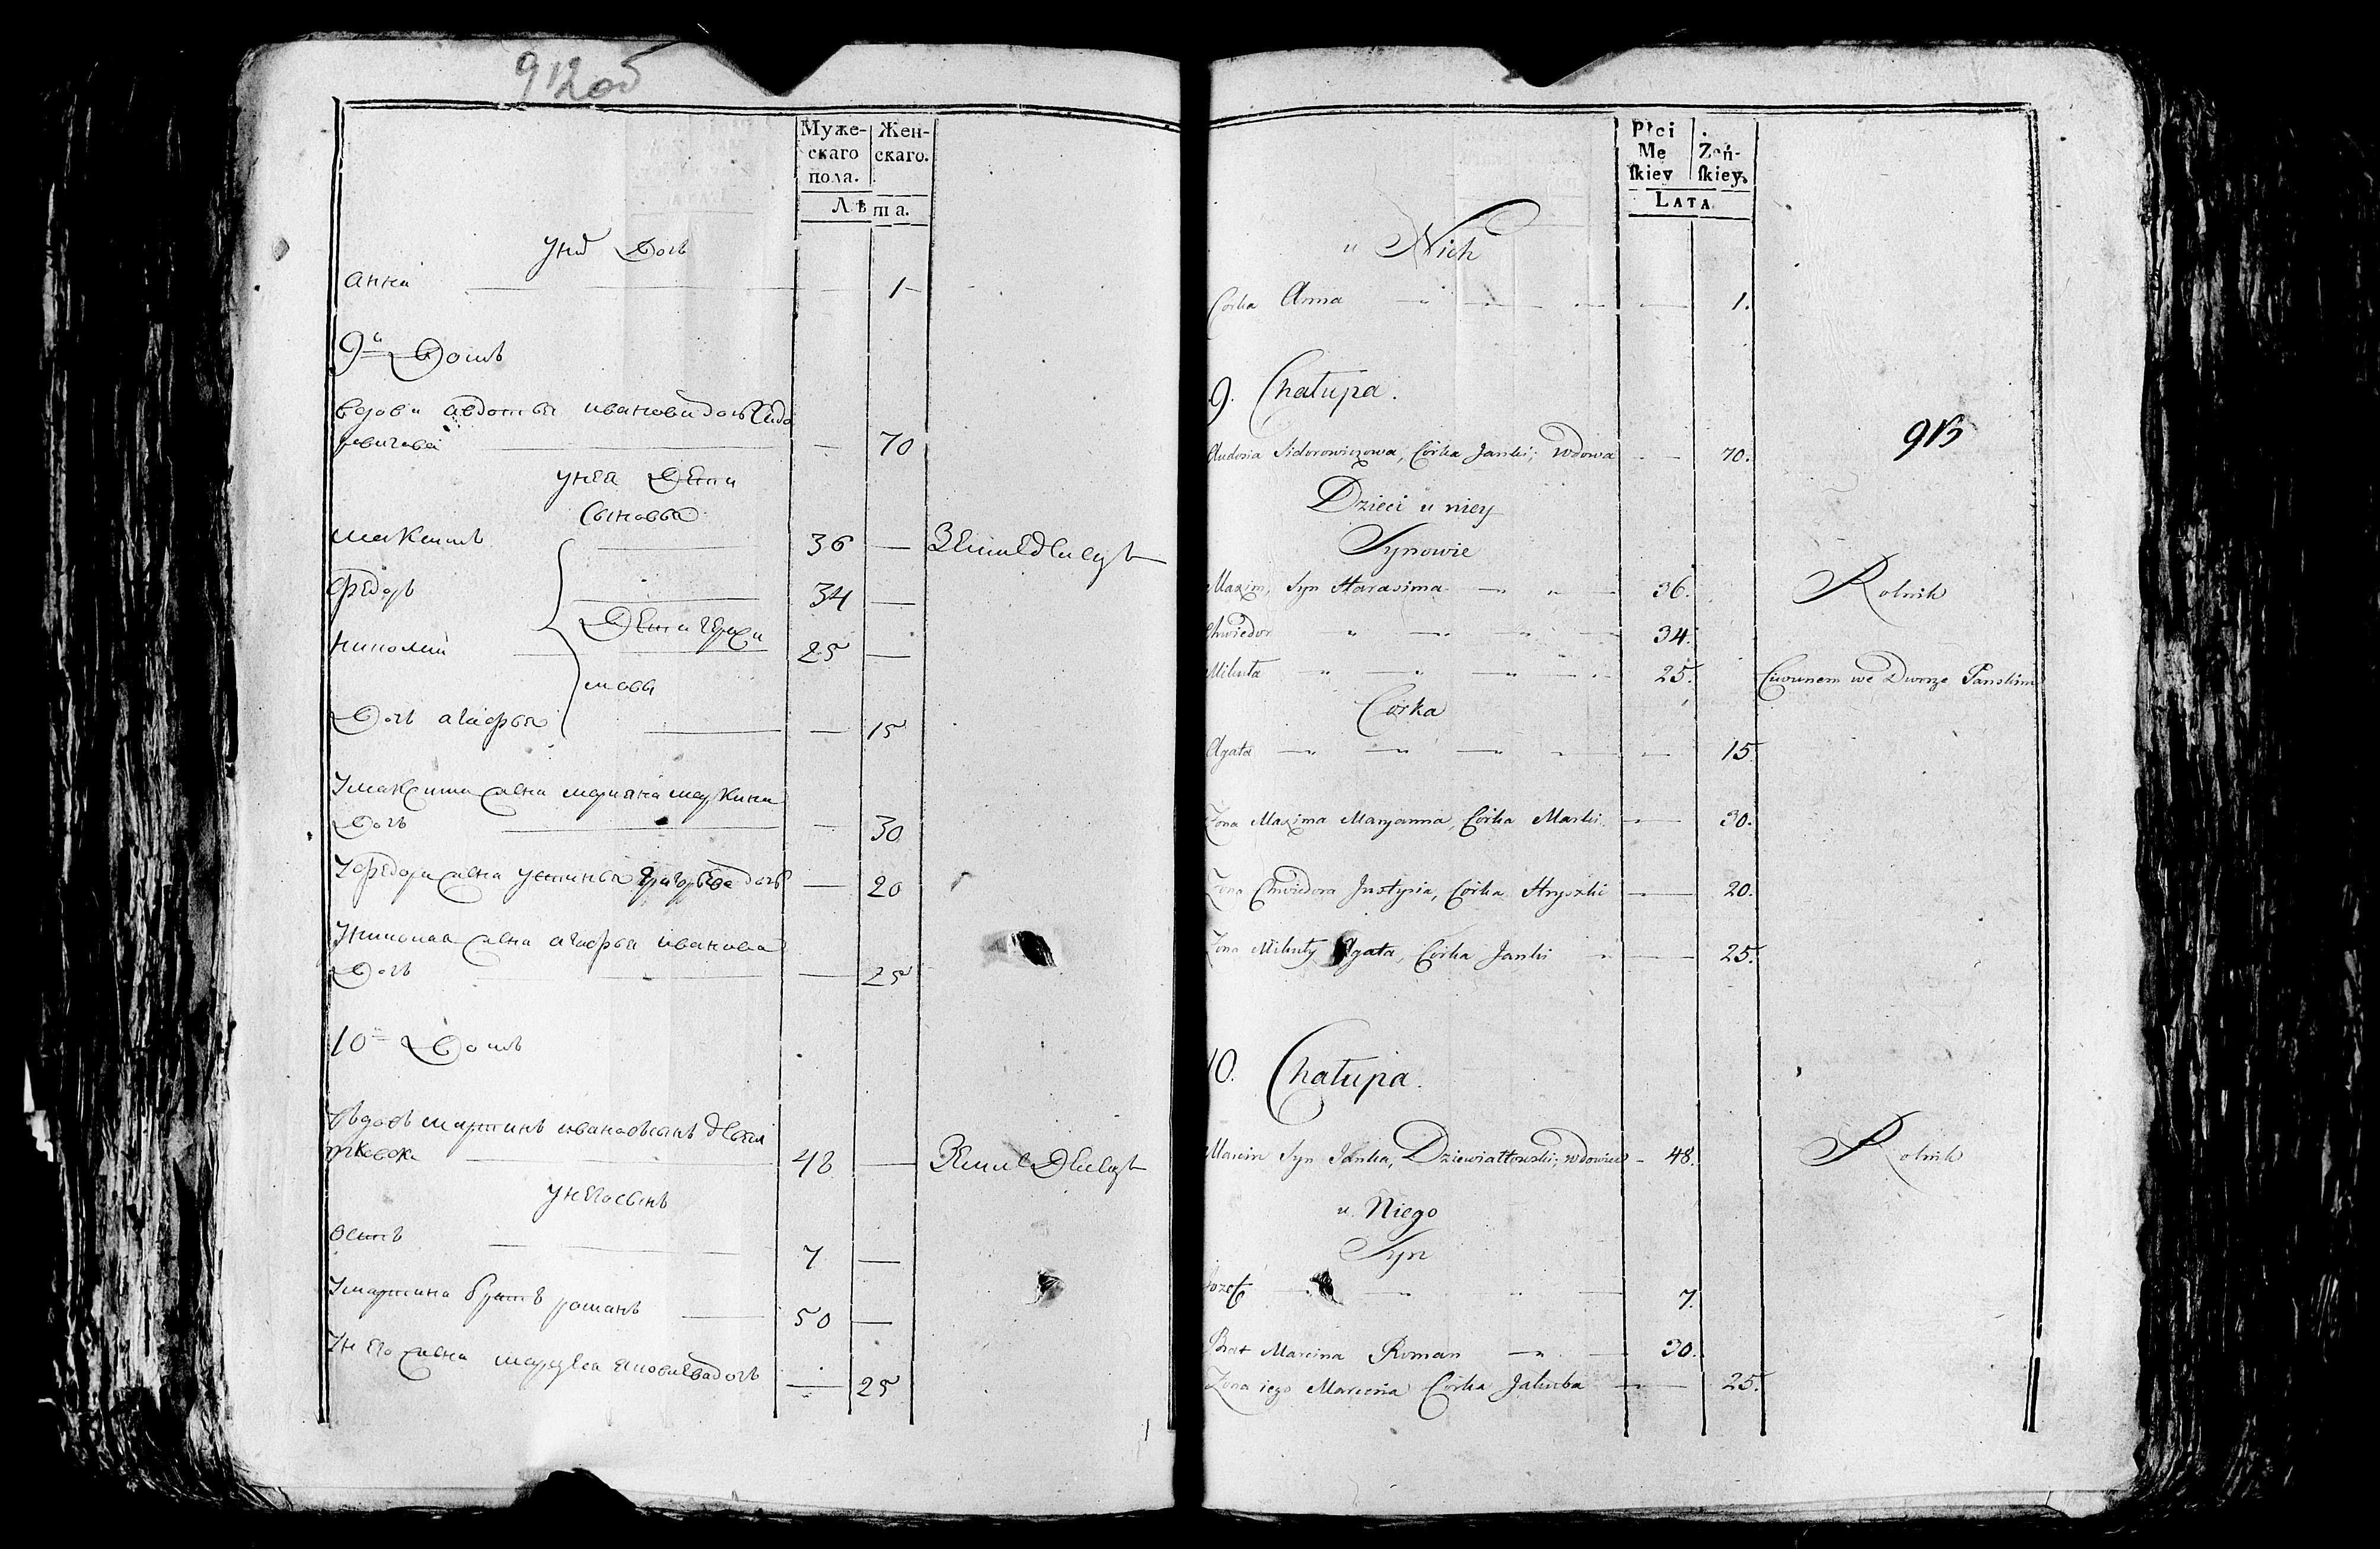 912 об
Муже- Жен-
скаго скаго.
пола.
Лѣта.
у нихъ Дочь
анна — 1
9й Домъ
вдова авдотья иванова дочь Сидо
ровичева — 70
у нея Дети
Сыновья
максимъ 36 — Земледѣлецъ
Федоръ 34 —
Дети гераси
николай 25 —
мовы
Дочь агафья — 15
У максима жена марияна маркина
Дочь — 30
У федора жена устинья григорьева дочь — 20
У николая жена агафья иванова
Дочь — 25
10й Домъ
вдовъ мартинъ ивановъ сынъ
48 — Земледѣлецъ
у него сынъ
осипъ 7 —
У мартина братъ романъ 50 —
У него жена марцеля дочь — 25
Płci
Me Zeń-
skiey skiey.
LATA
u Nich
Corka Anna — 1.
9. Chałupa.
913
Audosia Sidorowiczowa, Córka Janki; Wdowa — 70.
Dzieci u niey
Synowie
Maxim, Syn Harasima — 36. Rolnik
Chwiedor — 34.
Mikuta — 25. Ciwunem we Dworze Panskim
Corka
Agata — 15.
Zona Maxima Maryanna, Córka Marki — 30.
Zona Chwiedora Justysia, Córka Hryszki — 20.
Zona Mikuty Agata, Córka Janki — 25.
10. Chałupa.
Marcin Syn Janka, Dziewiattowski; wdowiec — 48. Rolnik
u Niego
Syn
Jozef — 7.
Brat Marcina Roman — 30.
Zona iego Marcela Córka Jakuba — 25.